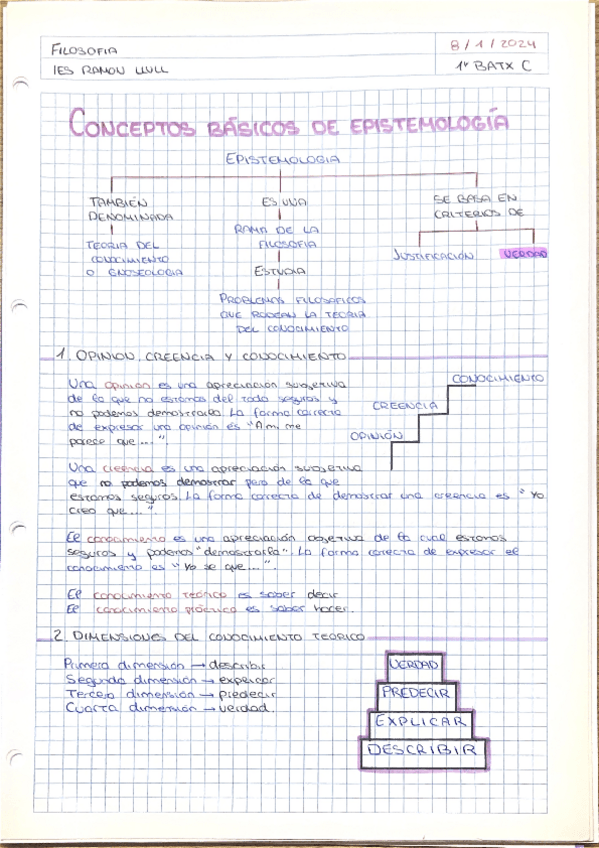 FILOSOFIA
8/1/2024
IES RAMON LLULL
1r BATX C
CONCEPTOS BÁSICOS DE EPISTEMOLOGÍA
EPISTEMOLOGIA
TAMBIÉN DENOMINADA
ES UNA
SE BASA EN CRITERIOS DE
TEORIA DEL CONOCIMIENTO O GNOSEOLOGIA
RAMA DE LA FILOSOFIA
JUSTIFICACIÓN
VERDAD
ESTUDIA
PROBLEMAS FILOSÓFICOS
QUE RODEAN LA TEORIA
DEL CONOCIMIENTO
1. OPINION, CREENCIA Y CONOCIMIENTO
Una opinion es una apreciación subjetiva
de la que no estamos del todo seguros y
no podemos demostrarla. La forma correcta
de expresar una opinión es "A mi me
parece que ...".
CONOCIMIENTO
CREENCIA
OPINIÓN
Una creencia es una apreciación subjetiva
que no podemos demostrar pero de la que
estamos seguros. La forma correcta de demostrar una creencia es "Yo
creo que...".
El conocimiento es una apreciación objetiva de la cual estamos
seguros y podemos "demostrarla". La forma correcta de expresar el
conocimiento es "Yo se que...".
El conocimiento teórico es saber decir
El conocimiento práctico es saber hacer.
2. DIMENSIONES DEL CONOCIMIENTO TEÓRICO
Primera dimensión → describir
Segunda dimensión → explicar
Tercera dimensión → predecir
Cuarta dimensión → verdad.
VERDAD
PREDECIR
EXPLICAR
DESCRIBIR